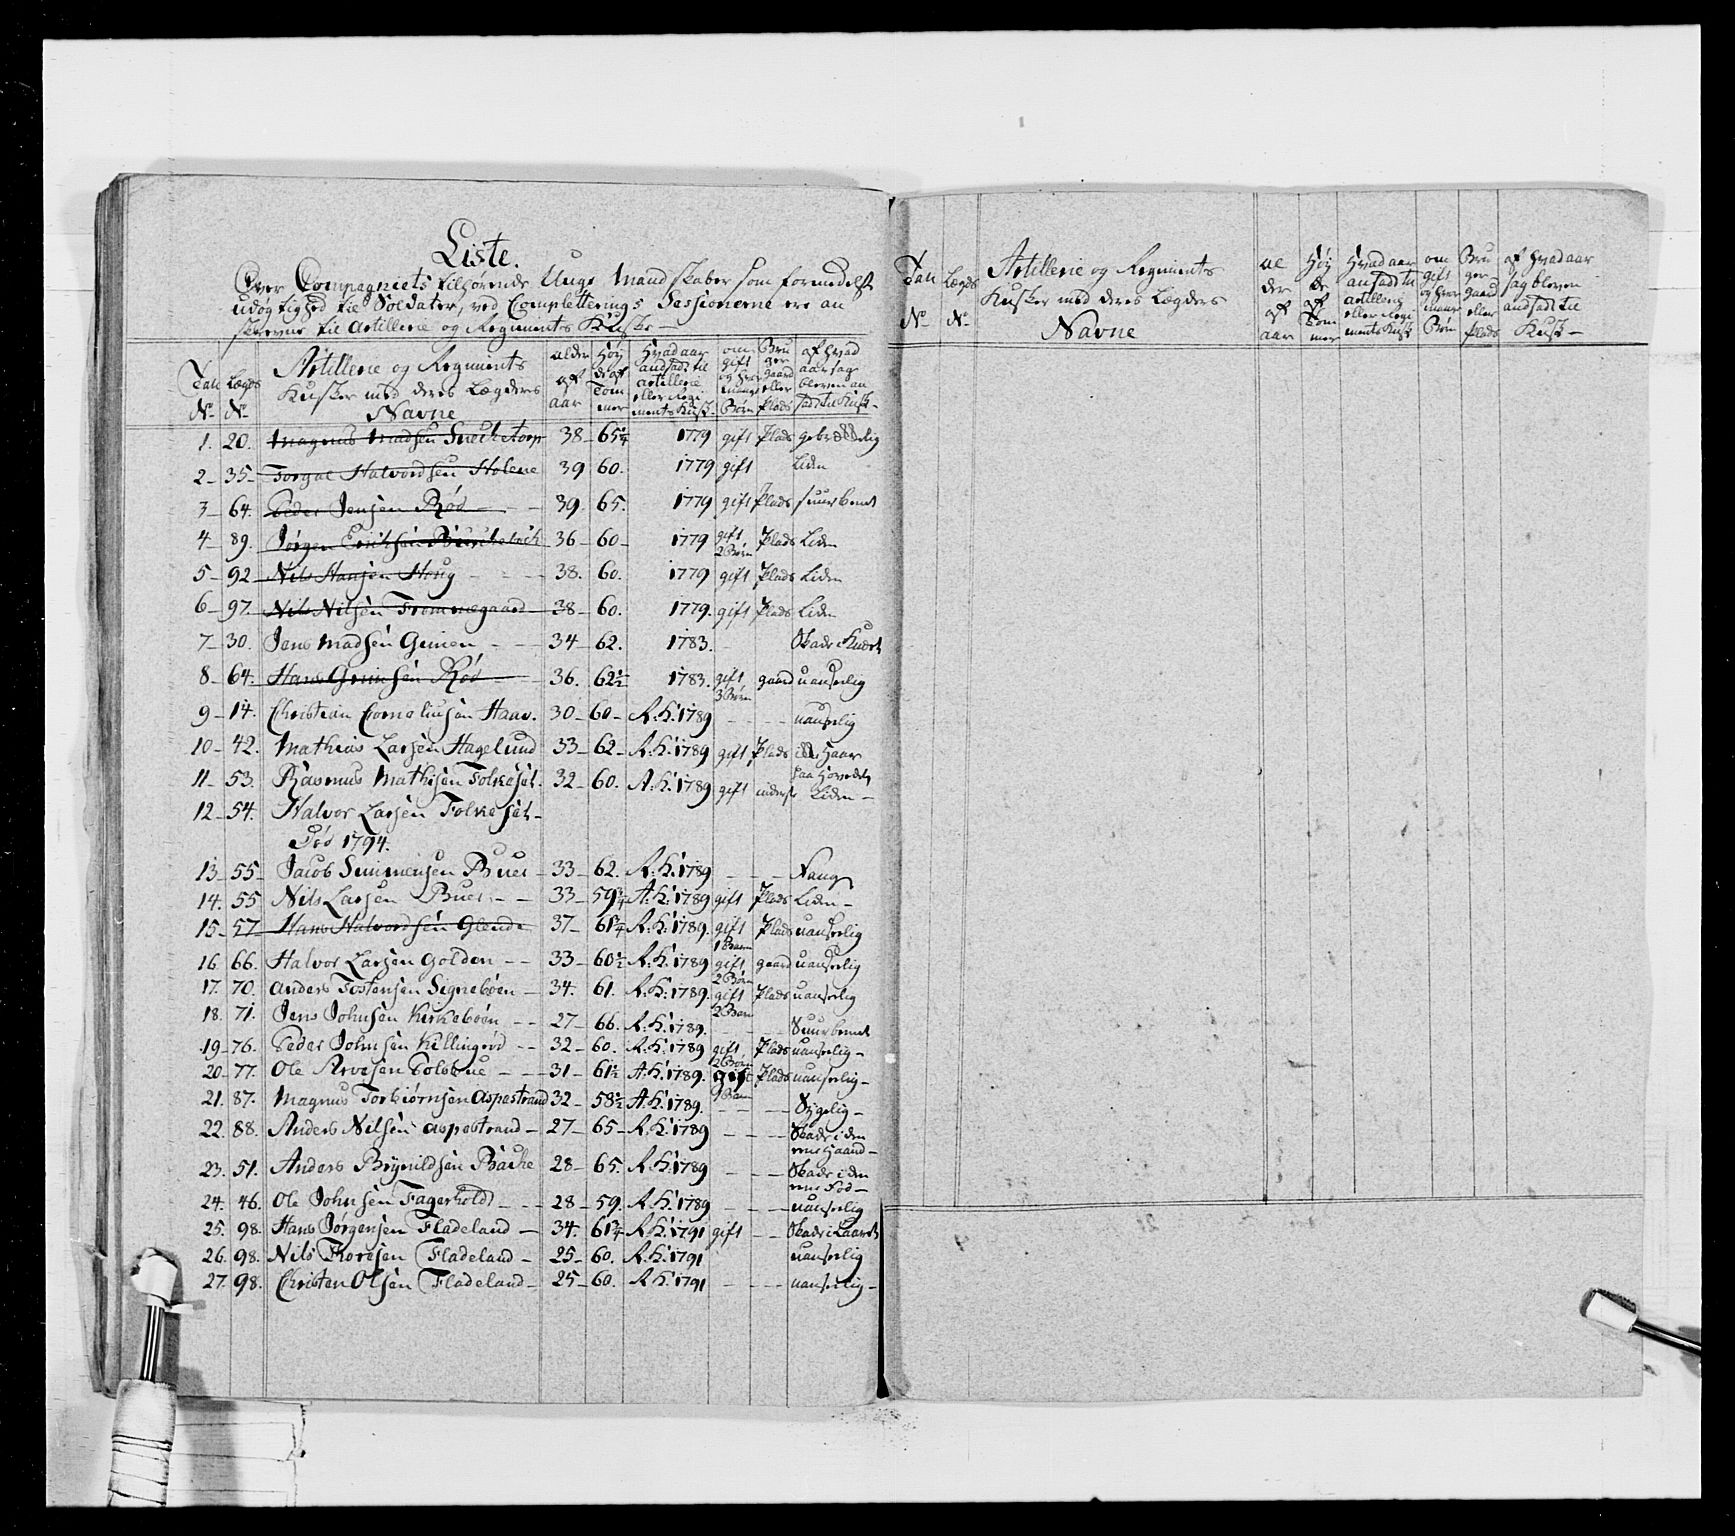 Liste.
Over Compagniets tilhørende Unge Mandskaber som formedelst
udøgtighed til Soldater, ved Completterings Sessionerne ere an
skrevne til Artillerie og Regiments Kuske
Tall No. Lægds No. Artillerie og Regiments Kusker med deres Lægders Navne alder af aar Høyde af Tommer Hvad aar andsadt til artillerie eller Regiments Kusk om gift og hvor mange Børn Bruger gaard eller Plads af hvad aarsag bleven ansadt til Kusk
1. 20. Magnus Madsen 38 65 1/4 1779 gift Plads gebræklelig
2 35 Torgal Halvordsen Holene 39 60. 1779 gift Liden
3 64. Peder Jensen Rød 39. 65. 1779 gift Plads
4 89. Jørgen Eriksen 36 60 1779 gift 2 Børn Plads Liden
5 92 Nils Hansen Houg 38. 60. 1779 gift Plads Liden
6 97. Nils Nilsen Trommegaard 38 60. 1779. gift Plads Liden
7 30. Jens Madsen 34 62. 1783. Skade i Knæet
8 64. Hans Rød 36. 62 1/2 1783. gift 3 Børn gaard uanseelig
9 14. Christian Corneliusen Haav. 30 60 A: K: 1789 uanseelig
10 42. Mathias Larsen Hagelund 33 62 A: K: 1789 gift Plads Haar
paa Hovedet
11 53. Rasmus Mathisen Folkeset. 32 60. A: K: 1789 gift inderst Liden
12 54. Halvor Larsen Folkeset
Død 1794.
13 55 Jacob Simmensen Buer 33 62. A: K: 1789
14. 55 Nils Larsen Buer 33 59 3/4 A: K: 1789 gift Plads Liden
15 57 Hans Halvordsen Glende 37 61 1/4 A: K: 1789. gift 1 Barn Plads uanseelig
16 66. Halvor Larsen Golden 33 60 1/2 A: K: 1789 gift 2 Børn gaard uanseelig
17. 70. Anders Tostensen Signebøen 34. 61. A: K: 1789. gift 2 Børn Plads uanseelig
18. 71. Jens Johnsen Kirkebøen 27 66. A: K: 1789.
19 76. Peder Johnsen Killingrød 32 60. A: K: 1789 gift 2 Børn Plads uanseelig
20 77. Ole Arvesen 31 61 1/2 A: K: 1789. gift 1 Barn Plads uanseelig
21. 87. Magnus Torkiørnsen Aspestrand 32 58 1/2 A: K: 1789. Sygelig
22. 88. Anders Nilsen Aspestrand 27 65 A: K: 1789 Skade i den
ene Haand
23. 51. Anders Brynildsen Backe 28 65. A: K: 1789 Skade i den
ene Fod
24. 46. Ole Johnsen Fagerhold 28 59. A: K: 1789 uanseelig
25. 98. Hans Jørgensen Fladeland 34. 61 3/4 A: K: 1791 gift Skade i Laaret
26. 98. Nils Toresen Fladeland 25 60. A: K: 1791 uanseelig
27. 98. Christen Olsen Fladeland 25 60. A: K: 1791 uanseelig
Tall No. Lægds No. Artillerie og Regiments Kusker med deres Lægders Navne alder af aar Høyde af Tommer Hvad aar ansadt til artillerie eller Regiments Kusk om gift og hvor mange Børn Bruger gaard eller Plads af hvad aarsag bleven andsadt til Kusk